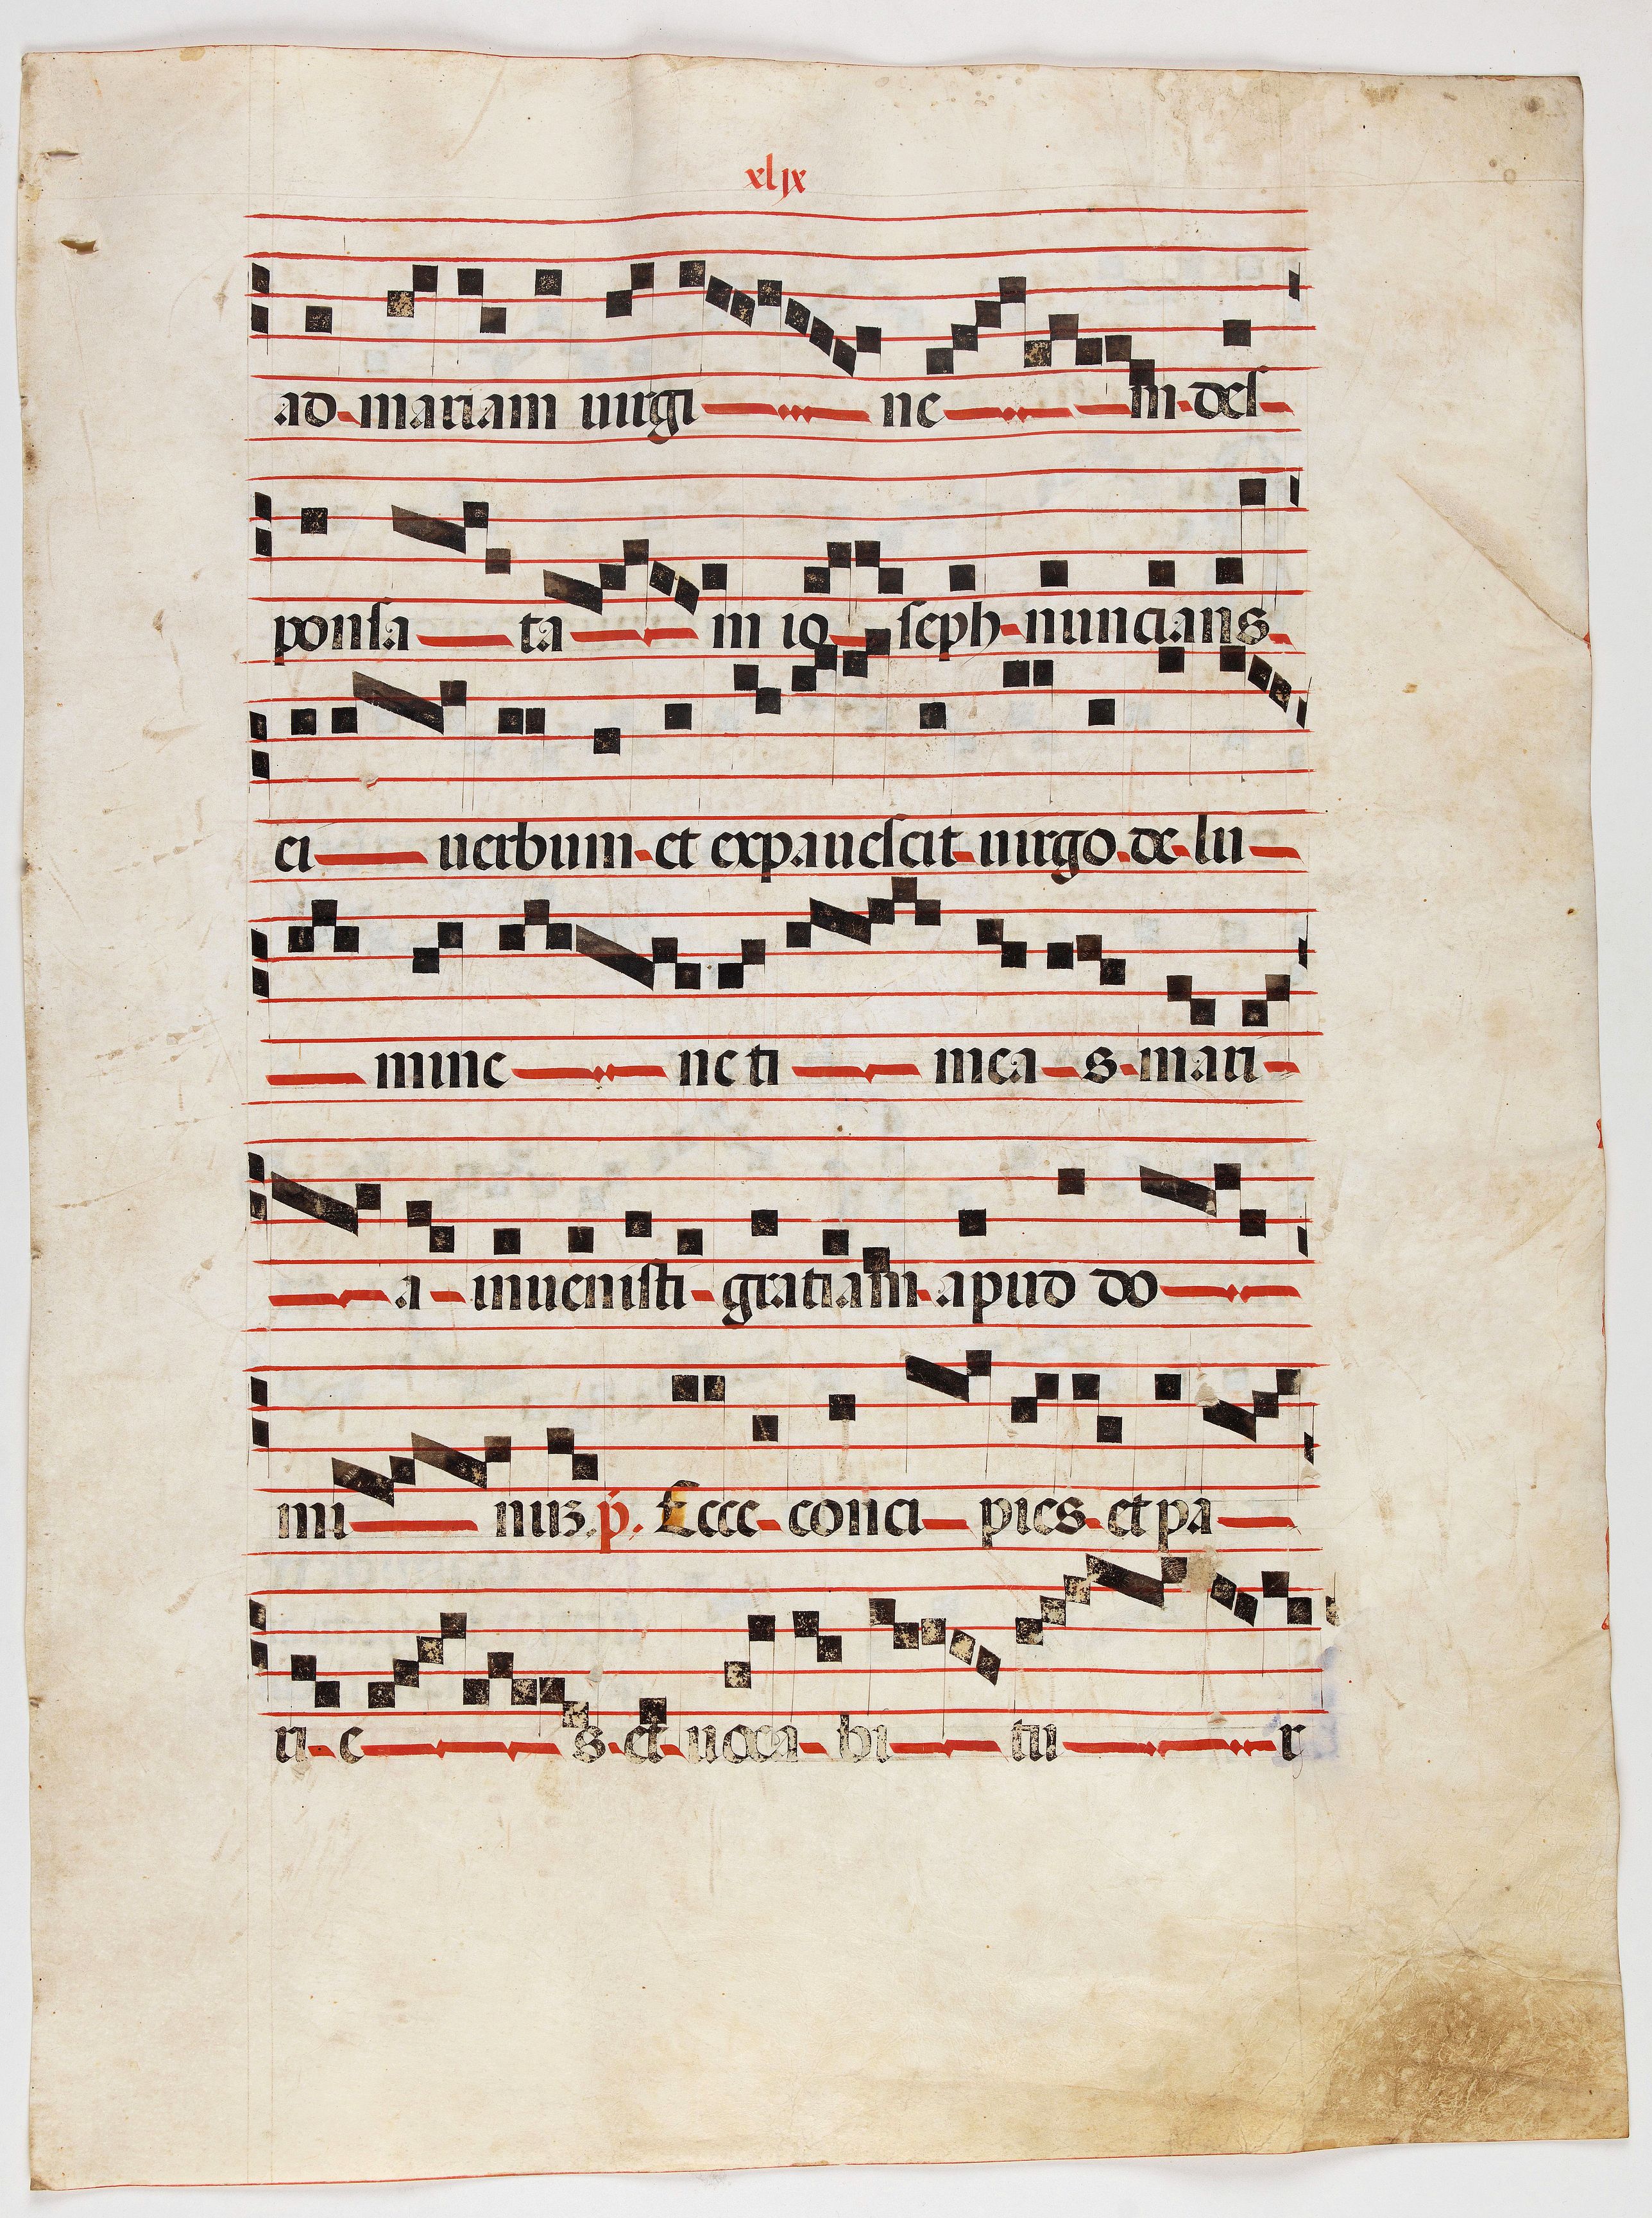 xljx
ad mariam uirgi ne m des
ponsa ta m io seph nuncians
ei uerbum et expauescit uirgo de lu
mine ne ti mea s mari
a inuenisti gratiam apud do
mi nuꝫ. p. Ecce conci pies et pa
ri e s et uoca bi tu r